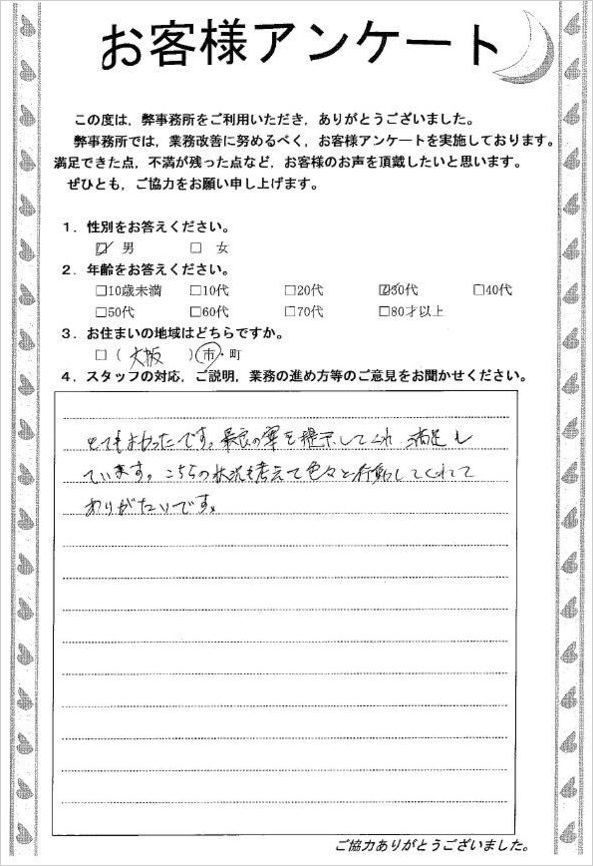 お客様アンケート
この度は，弊事務所をご利用いただき，ありがとうございました。
弊事務所では，業務改善に努めるべく，お客様アンケートを実施しております。
満足できた点，不満が残った点など，お客様のお声を頂戴したいと思います。
ぜひとも，ご協力をお願い申し上げます。
1．性別をお答えください。
☑ 男 □ 女
2．年齢をお答えください。
□10歳未満 □10代 □20代 ☑30代 □40代
□50代 □60代 □70代 □80才以上
3．お住まいの地域はどちらですか。
□（ 大阪 ）市・町
4．スタッフの対応，ご説明，業務の進め方等のご意見をお聞かせください。
とてもよかったです。最良の案を提示してくれ 満足し
ています。こちらの状況も考えて色々と行動してくれて
ありがたいです。
ご協力ありがとうございました。